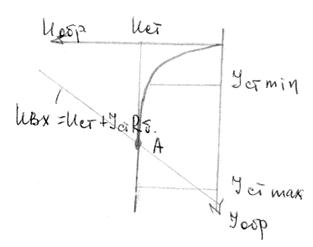 Uобр Uст
Iст min
Uвх = Uст + IстRб.
A
Iст max
Iобр